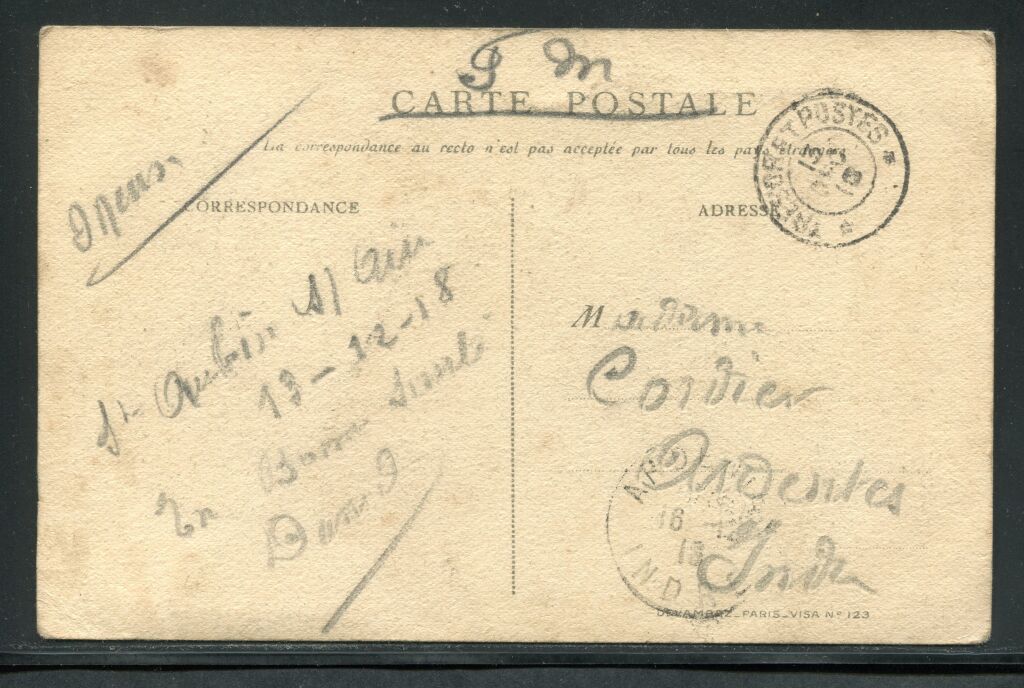 F M
CARTE POSTALE
La correspondance au recto n'est pas acceptée par tous les pays étrangers
TRESOR ET POSTES
13
18
CORRESPONDANCE
ADRESSE
St Aubin s/ Aire
13-12-18
En Bonne Santé
Madame
Cordier
Ardentes
Indre
16
18
IND
DEVAMBEZ_PARIS_VISA Nº 123